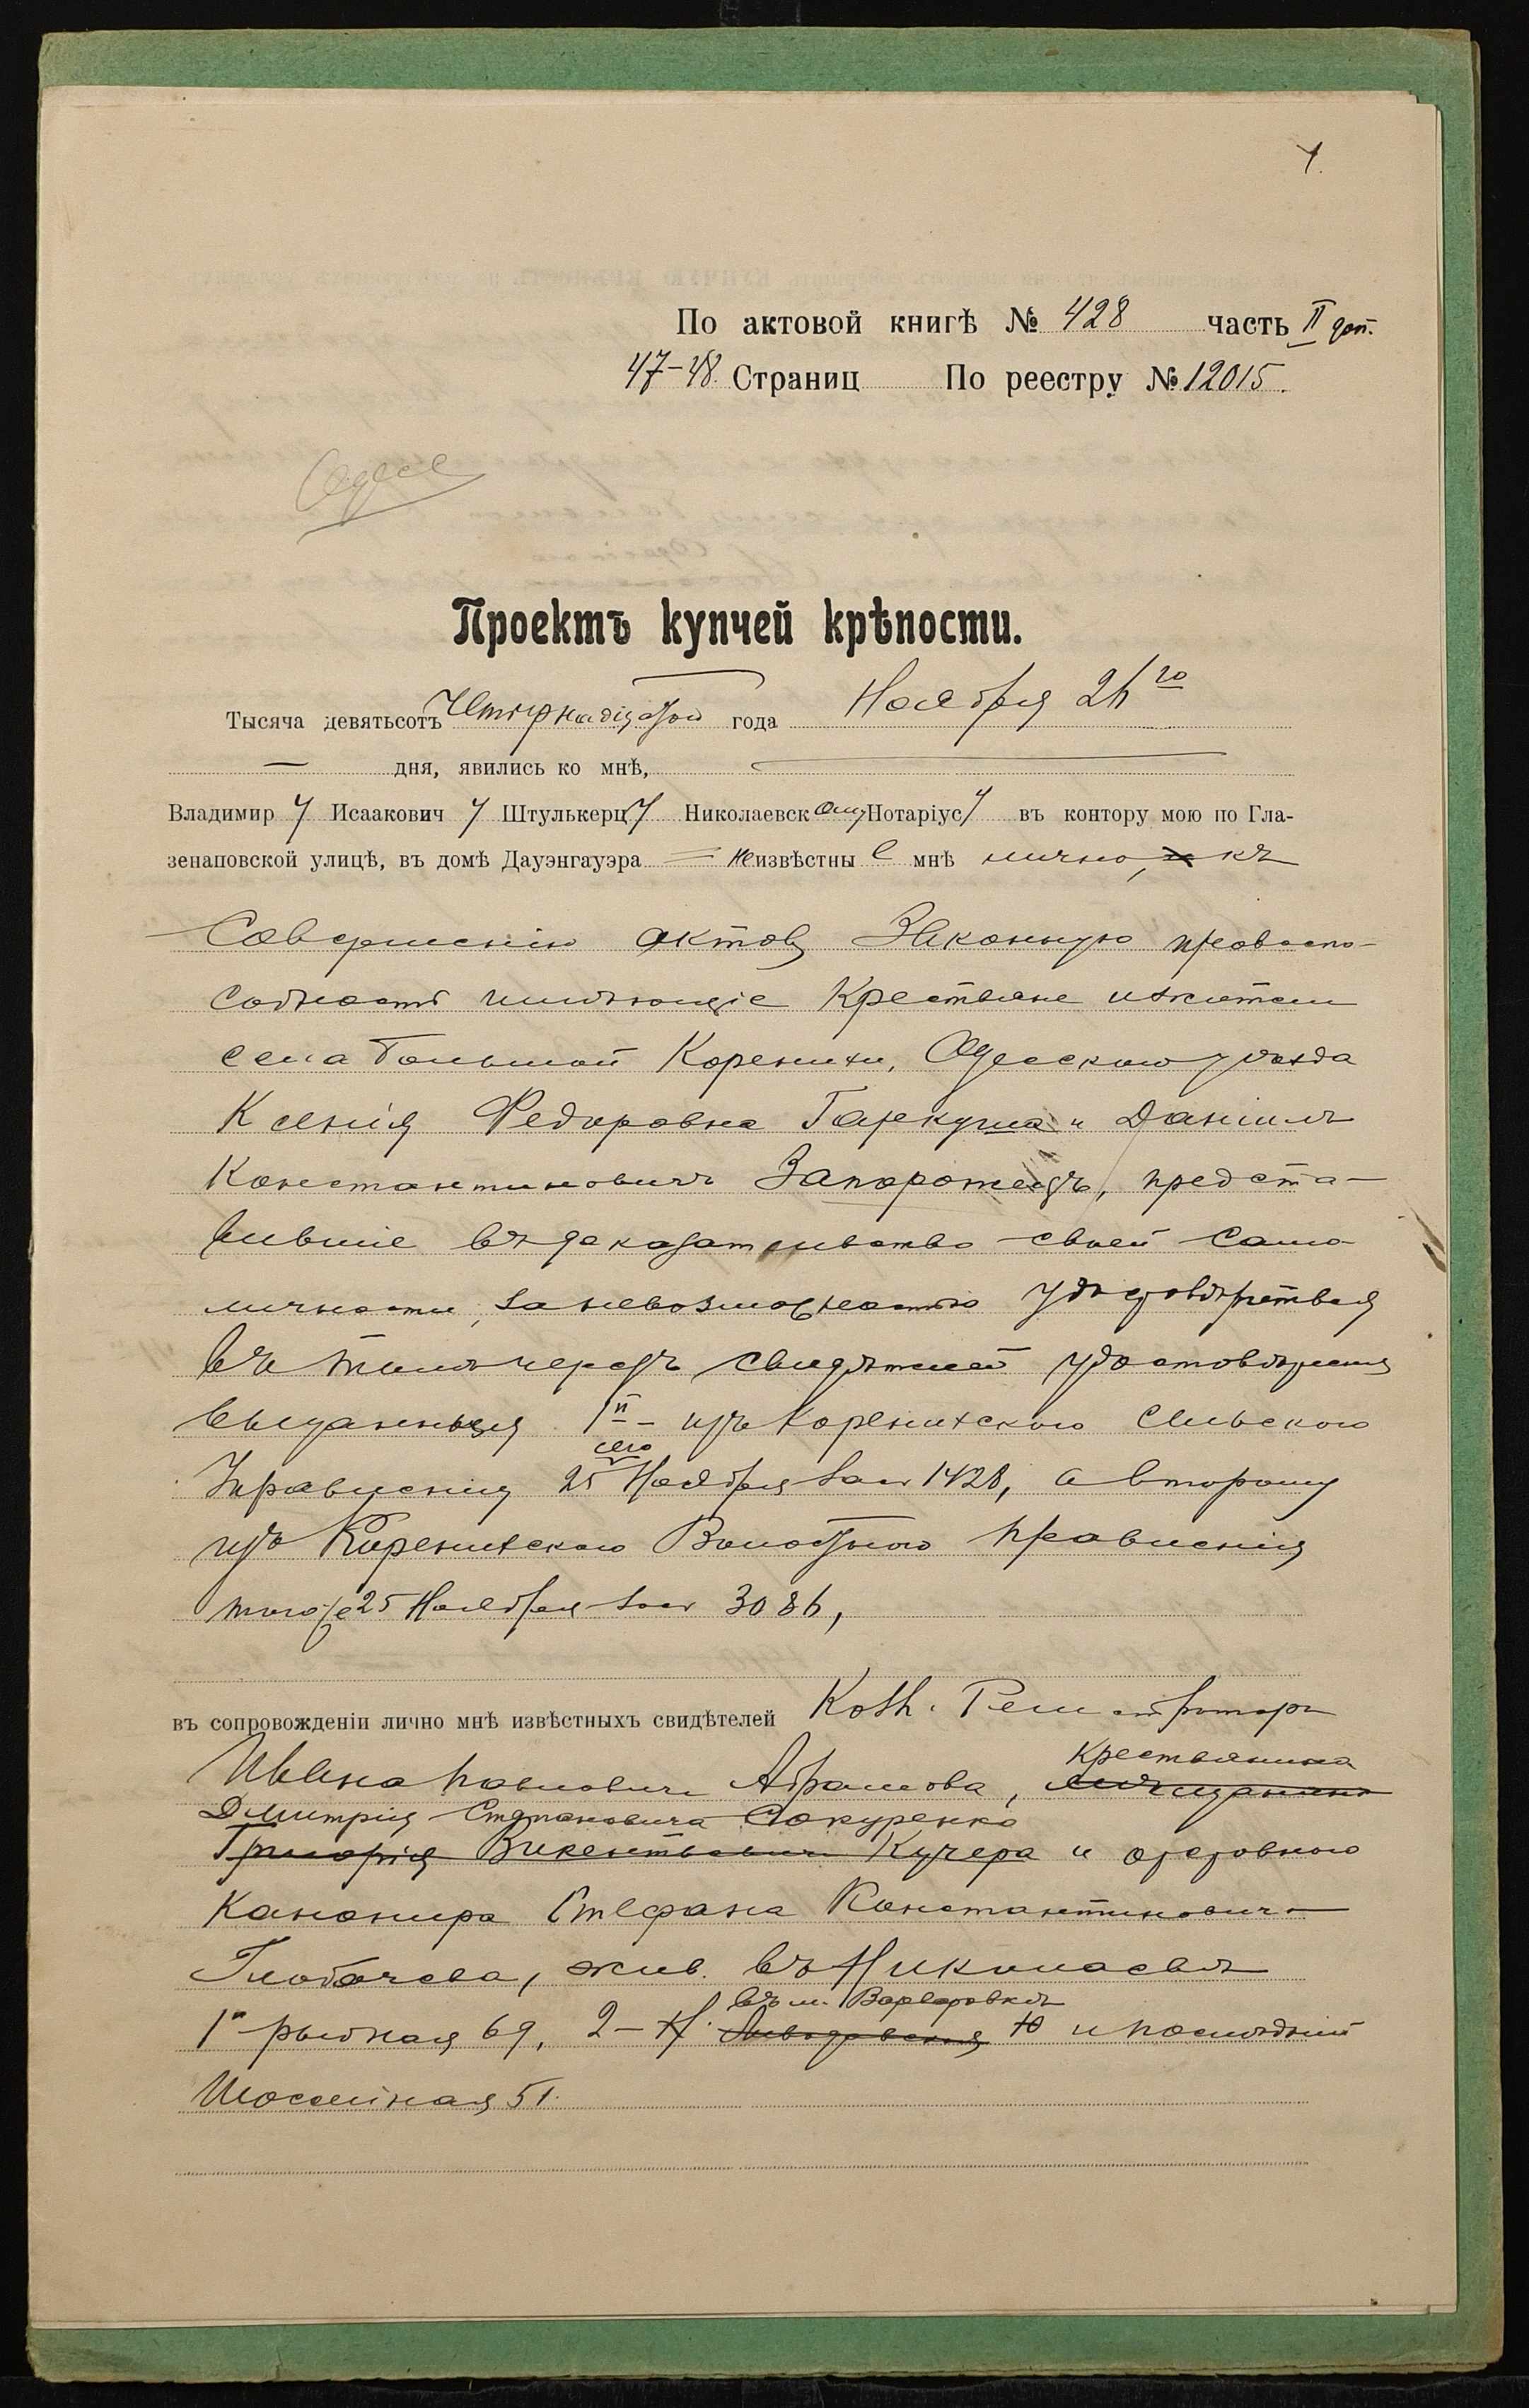 1.
По актовой книгѣ № 428 часть II доп.
47-48. Страниц По реестру № 12015.
Одесс
Проектъ купчей крѣпости.
Тысяча девятьсотъ Четырнадцатого года Ноября 26го
— дня, явились ко мнѣ,
Владимиру Исааковичу Штулькерцу Николаевскому Нотаріусу въ контору мою по Гла-
зенаповской улицѣ, въ домѣ Дауэнгауэра = неизвѣстные мнѣ лично, къ
Совершенію актовъ Законную правоспо-
собность имѣющіе Крестьяне и жители
села Большой Коренихи, Одесского уѣзда
Ксенія Федоровна Гаркуша и Даніилъ
Константиновичъ Запорожецъ, предста-
вившіе въ доказательство своей само-
личности, за невозможностью удостовѣриться
въ томъ чрезъ свидѣтелей удостовѣренія
выданныя 1й - изъ Коренихского Сельского
Управленія 25 сего Ноября за № 1428, а второму
изъ Коренихского Волостного Правленія
того же 25 Ноября за № 3086,
въ сопровожденіи лично мнѣ извѣстныхъ свидѣтелей Колл. Регистратора
Ивана Павловича Абрамова, крестьянина ~~мѣщанина~~
Дмитрія Степановича Сокуренко
~~Григорія Викентьевича Кучера~~ и отставного
Канонира Стефана Константиновича
Глобачева, жив. въ Николаевѣ
въ м. Варваровкѣ
1й рыбная 69, 2-й и послѣдній
Шоссейная 51.